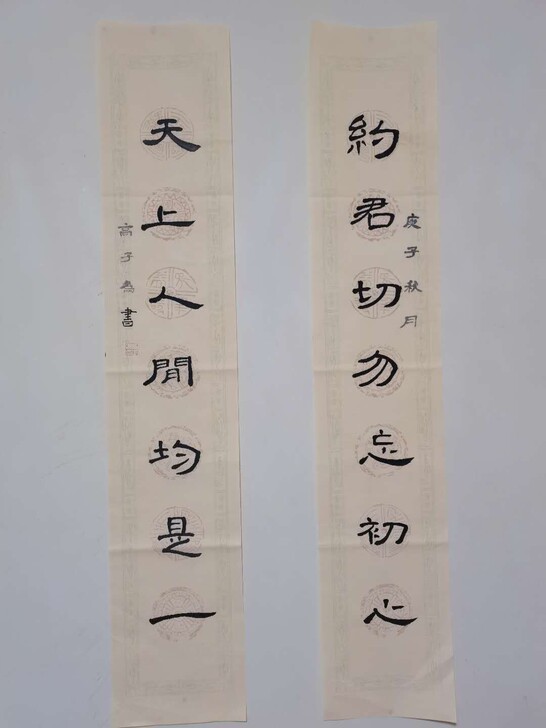 庚子秋月
約君切勿忘初心
天上人間均是一
高子書